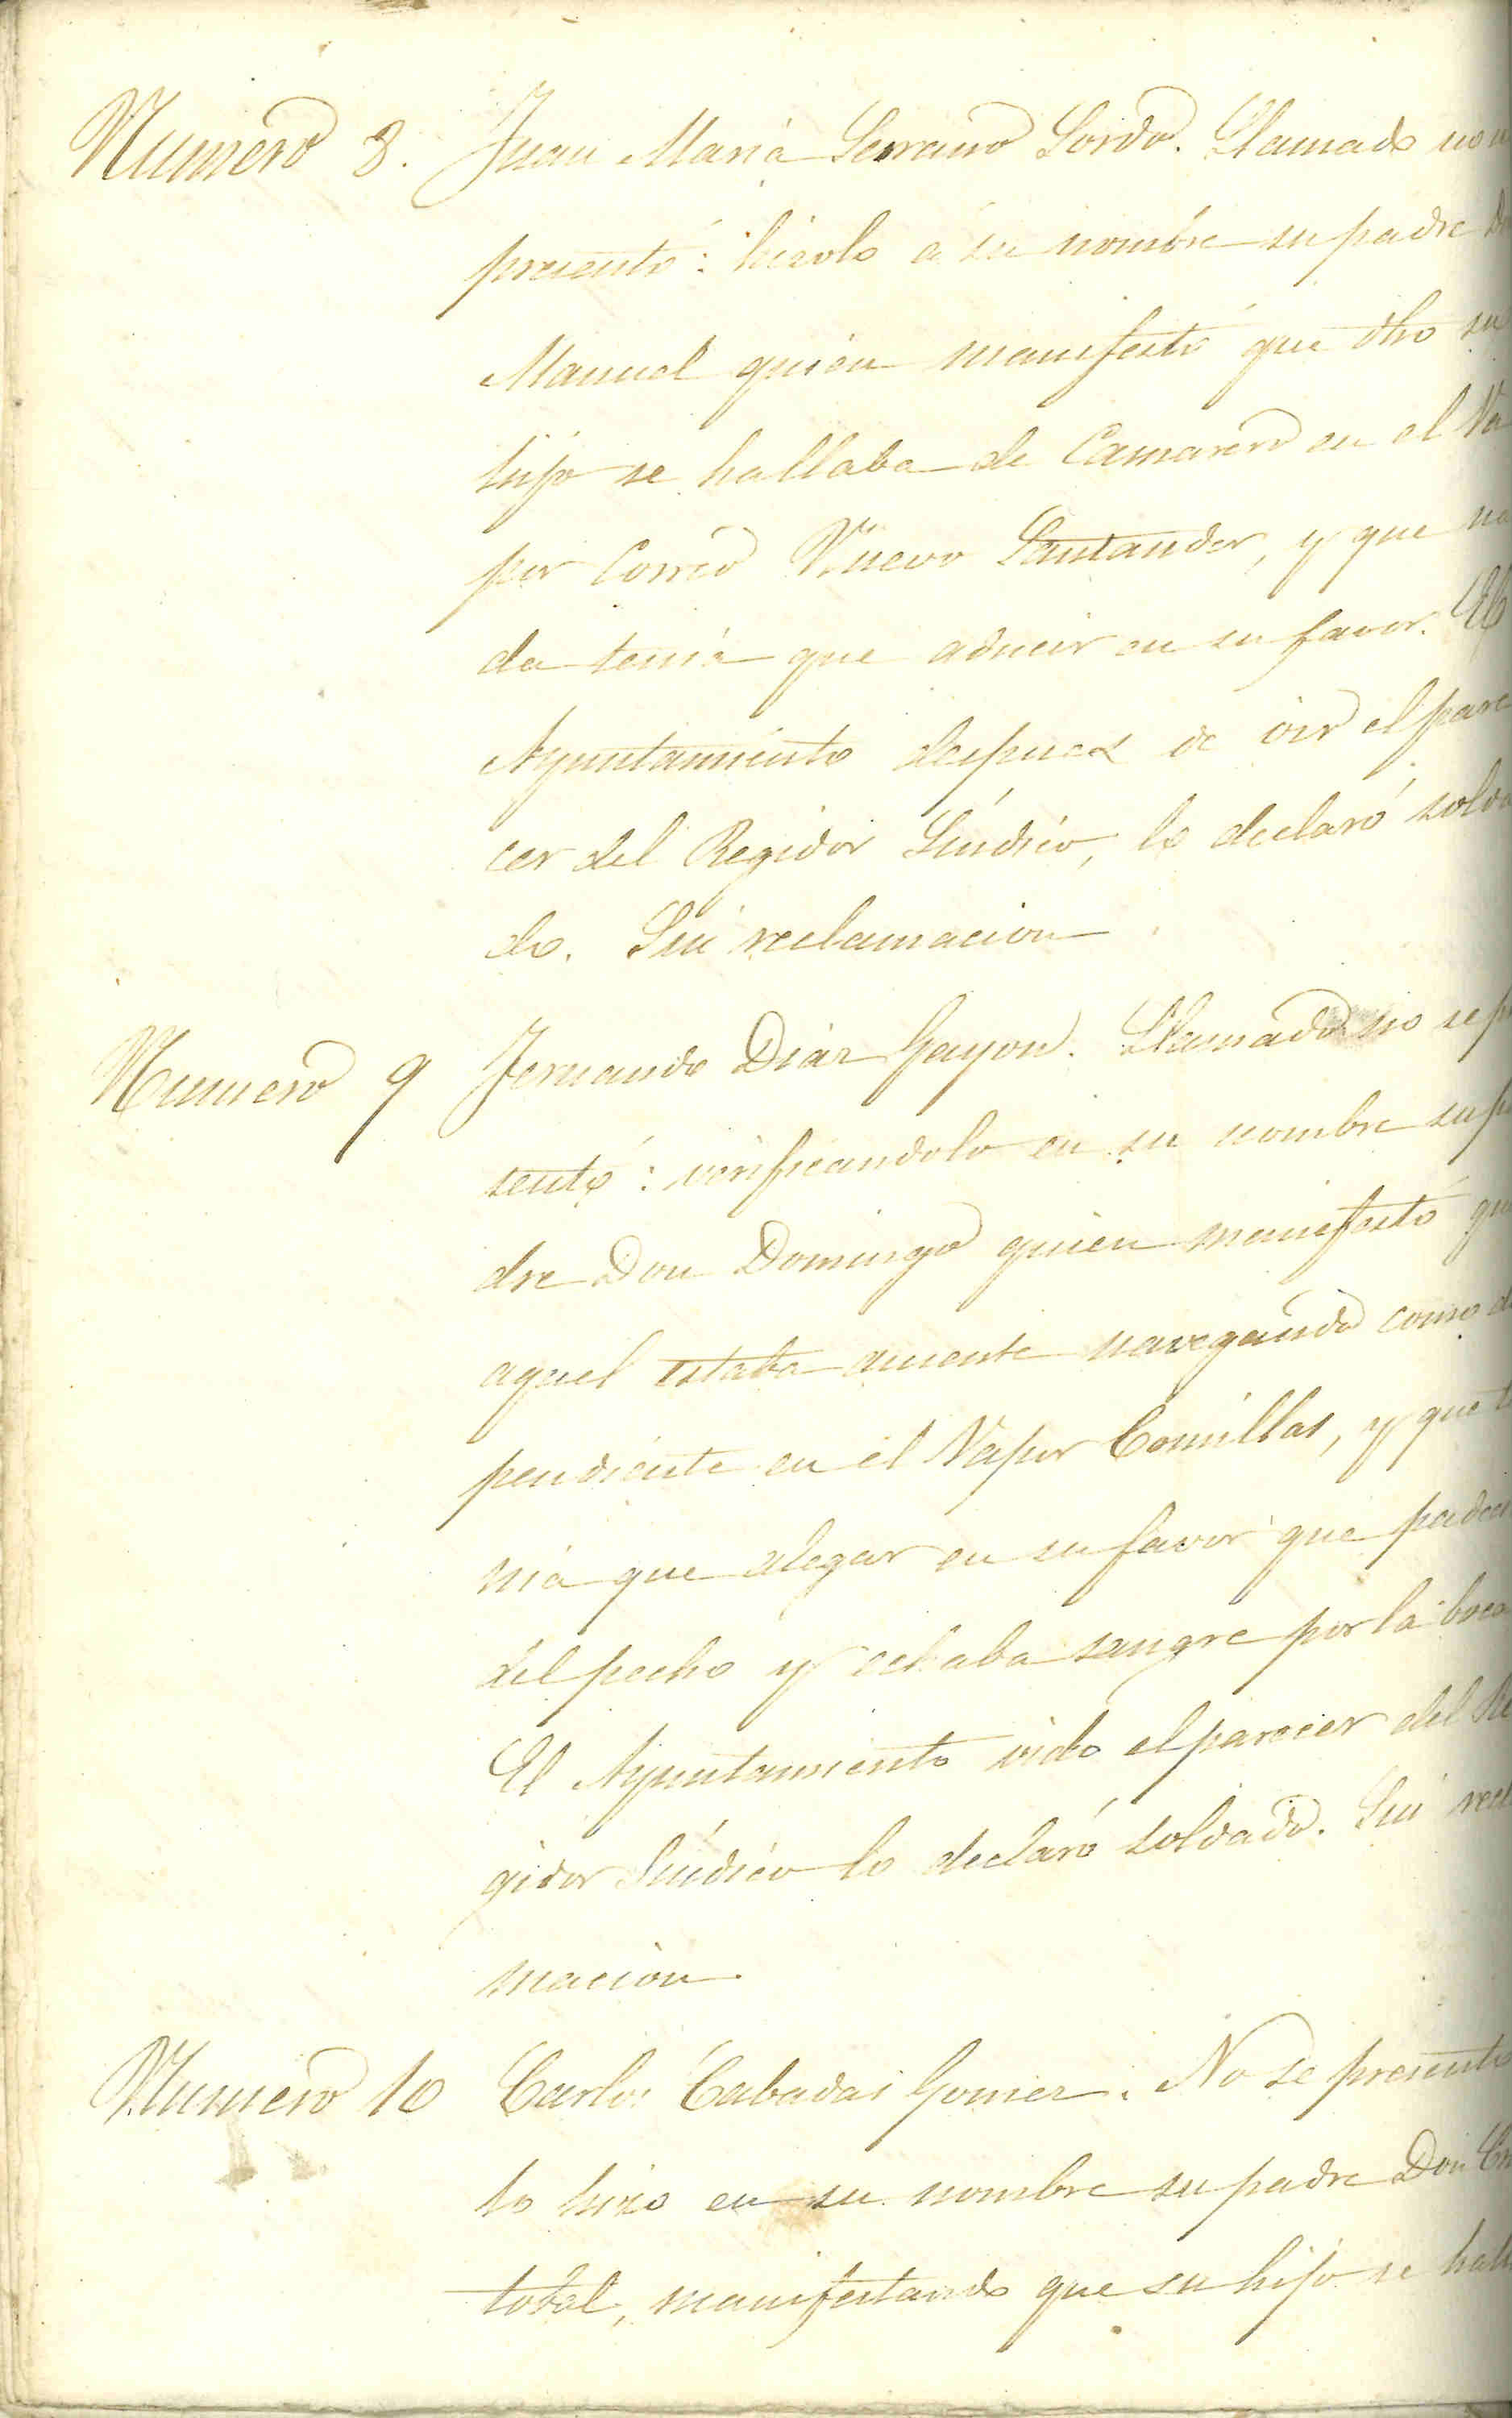 Numero 8. Juan Maria Serrano Sordo. Llamado no
presentó: hizolo a su nombre su padre
Manuel quien manifestó que dho su
hijo se hallaba de Camarero en el Va
por Correo Nuevo Santander, y que na
da tenia que aducir en su favor. El
Ayuntamiento despues de oir el pare
cer del Regidor Síndico, lo declaró solda
do. Sin reclamacion
Numero 9 Fernando Diaz Gayon. Llamado no se
sentó: verificandolo en su nombre su
dre Don Domingo quien manifestó que
aquel estaba ausente navegando como de
pendiente en el Vapor Comillas, y que te
nia que alegar en su favor que padeci
del pecho y echaba sangre por la boca
El Ayuntamiento oido el parecer del Re
gidor Síndico lo declaró soldado. Sin recl
macion.
Numero 10 Carlos Cabadas Gomez. No se presentó
lo hizo en su nombre su padre Don Cris
tobal, manifestando que su hijo se hall